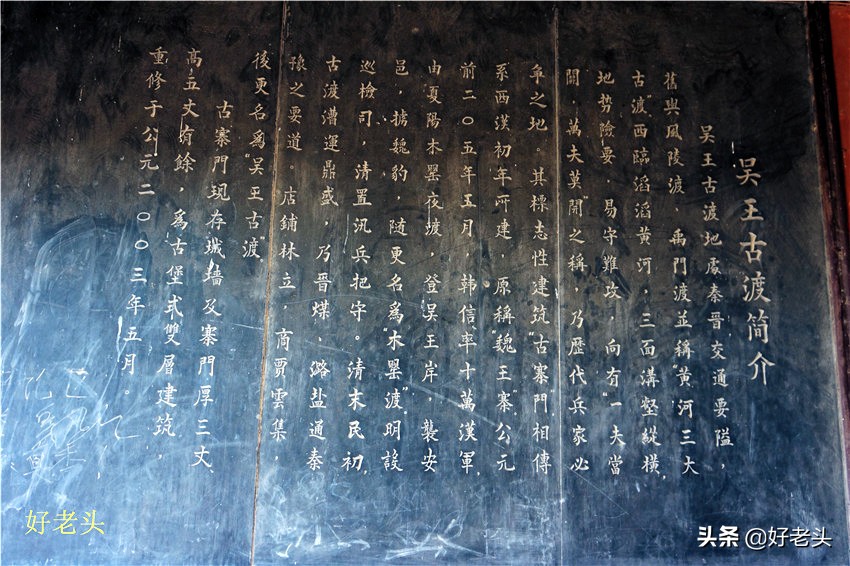 吴王古渡简介
吴王古渡地處秦晉交通要隘，
舊與風陵渡、禹門渡並稱"黄河三大
古渡"西臨滔滔黄河，三面溝壑縱横，
地势險要，易守難攻，向有"一夫當
關，萬夫莫開"之稱，乃歷代兵家必
争之地。其標志性建筑"古寨門相傳
系西漢初年所建，原稱"魏王寨"公元
前二〇五年五月，韩信率十萬漢軍，
由夏陽木罌夜渡，登吴王岸，襲安
邑，擄魏豹，随更名爲"木罌渡"，明設
巡檢司，清置汛兵把守。清末民初，
古渡漕運鼎盛，乃晋煤、潞盐通秦
豫之要道。店鋪林立，商賈雲集，
後更名爲"吴王古渡，
古寨門現存城墻及寨門厚三丈，
高五丈有餘，爲古堡式雙層建筑，
重修于公元二〇〇三年五月。
好老头
头条 @好老头